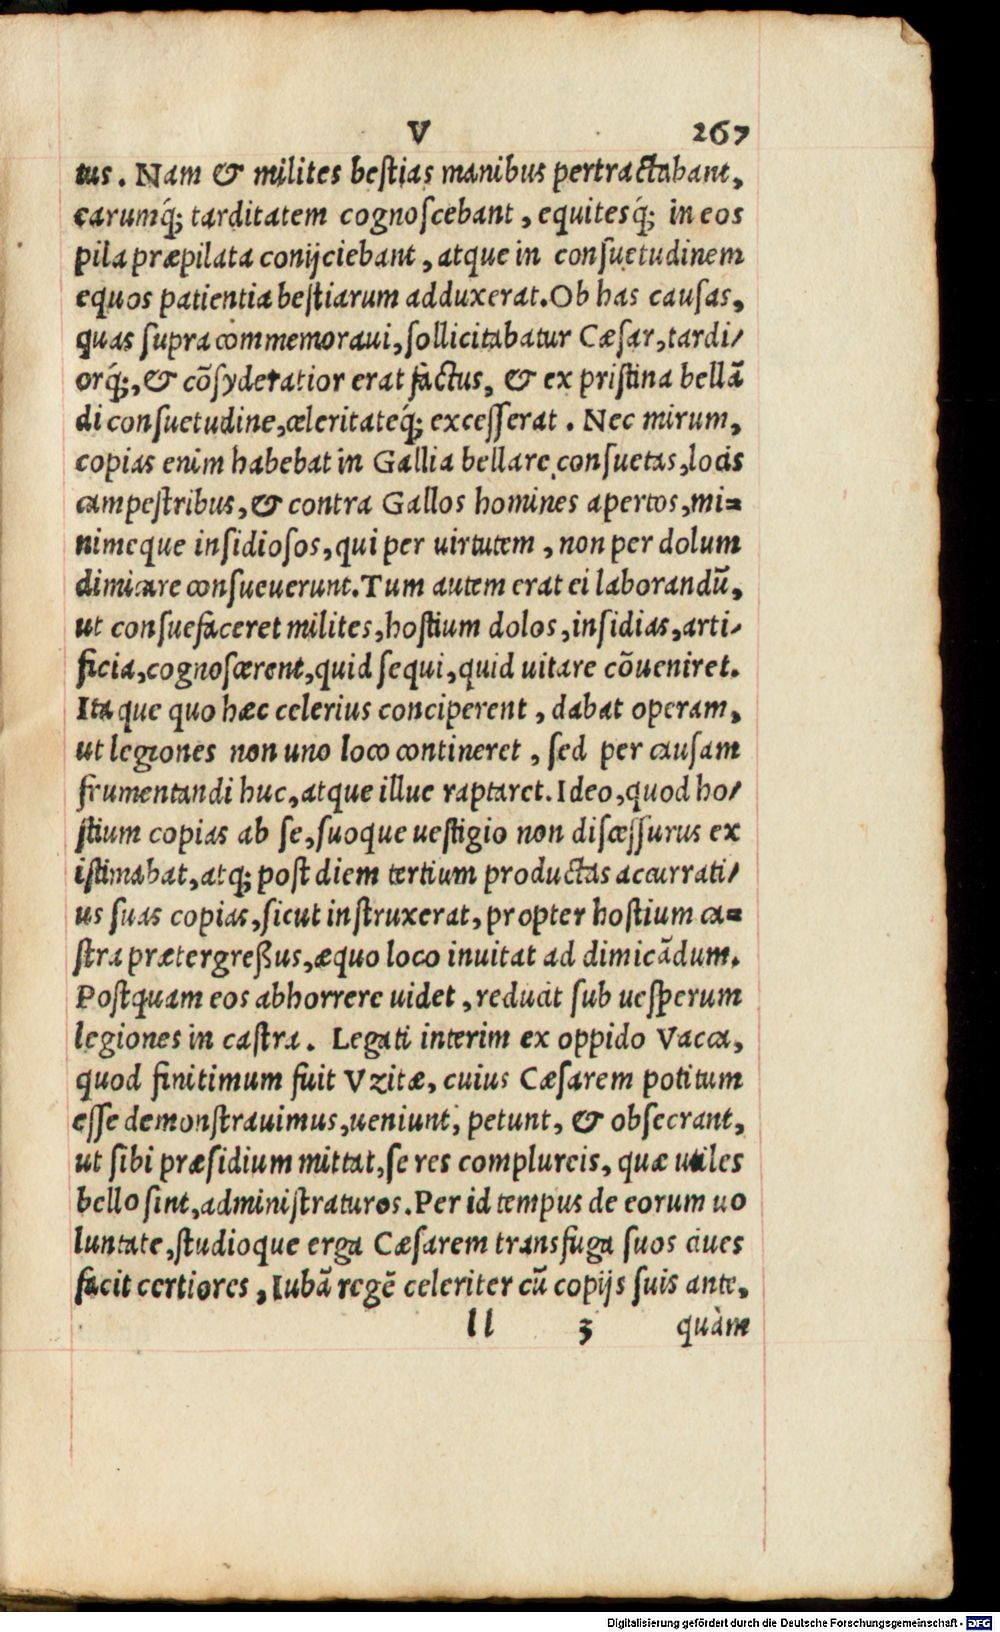 V 267
tus. Nam & milites bestias manibus pertractabant,
earumq́; tarditatem cognoscebant, equitesq́; in eos
pila præpilata conijciebant, atque in consuetudinem
equos patientia bestiarum adduxerat. Ob has causas,
quas supra commemoraui, sollicitabatur Cæsar, tardi/
orq́;, & cõsyderatior erat factus, & ex pristina bellã
di consuetudine, celeritateq́; excesserat. Nec mirum,
copias enim habebat in Gallia bellare consuetas, locis
campestribus, & contra Gallos homines apertos, mi=
nimeque insidiosos, qui per uirtutem, non per dolum
dimicare consueuerunt. Tum autem erat ei laborandũ,
ut consuefaceret milites, hostium dolos, insidias, arti/
ficia, cognoscerent, quid sequi, quid uitare cõueniret.
Ita que quo hæc celerius conciperent, dabat operam,
ut legiones non uno loco contineret, sed per causam
frumentandi huc, atque illuc raptaret. Ideo, quod ho/
stium copias ab se, suoque uestigio non discessurus ex
istimabat, atq; post diem tertium productas accurrati/
us suas copias, sicut instruxerat, propter hostium ca=
stra prætergreßus, æquo loco inuitat ad dimicãdum.
Postquam eos abhorrere uidet, reducit sub uesperum
legiones in castra. Legati interim ex oppido Vacca,
quod finitimum fuit Vzitæ, cuius Cæsarem potitum
esse demonstrauimus, ueniunt, petunt, & obsecrant,
ut sibi præsidium mittat, se res complureis, quæ utiles
bello sint, administraturos. Per id tempus de eorum uo
luntate, studioque erga Cæsarem transfuga suos ciues
facit certiores, Iubã regẽ celeriter cũ copijs suis ante,
ll 3 quàm
Digitalisierung gefördert durch die Deutsche Forschungsgemeinschaft - DFG